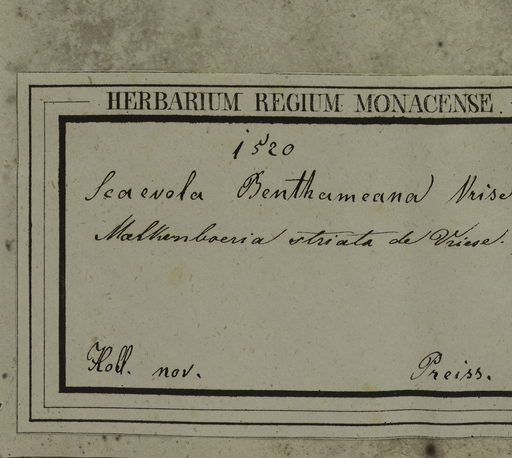 HERBARIUM REGIUM MONACENSE.
1520
Scaevola Benthameana Vriese
Molkenboeria striata de Vriese.
Holl. nov. Preiss.